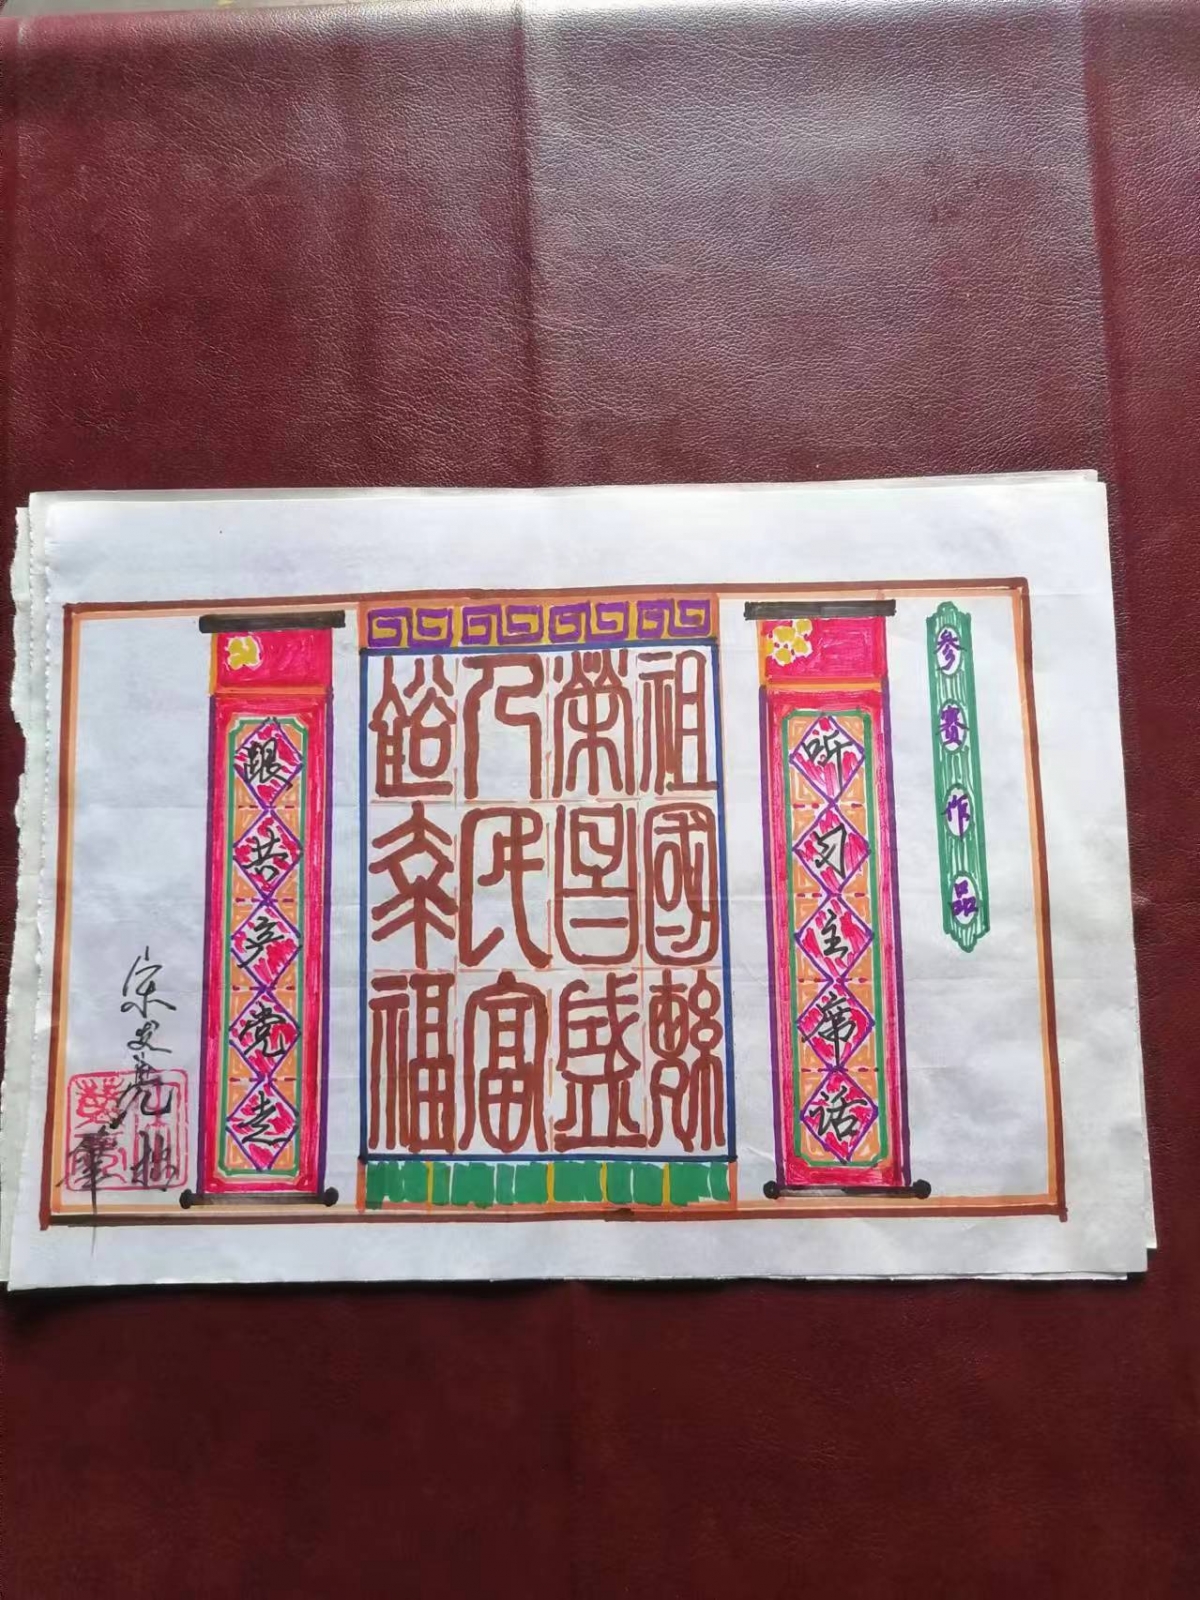 参赛作品
听习主席话
祖國繁
榮昌盛
人民富
裕幸福
跟共产党走
宋发亮拙
笔